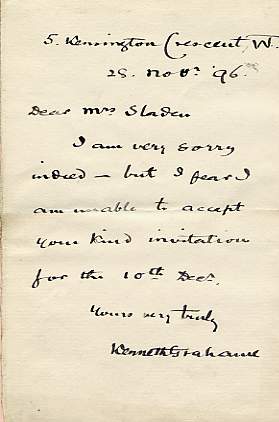 5. Kensington Crescent, W.
28. Novr. '96.
Dear Mrs Sladen
I am very sorry
indeed – but I fear I
am unable to accept
your kind invitation
for the 10th Decr.
Yours very truly
Kenneth Grahame